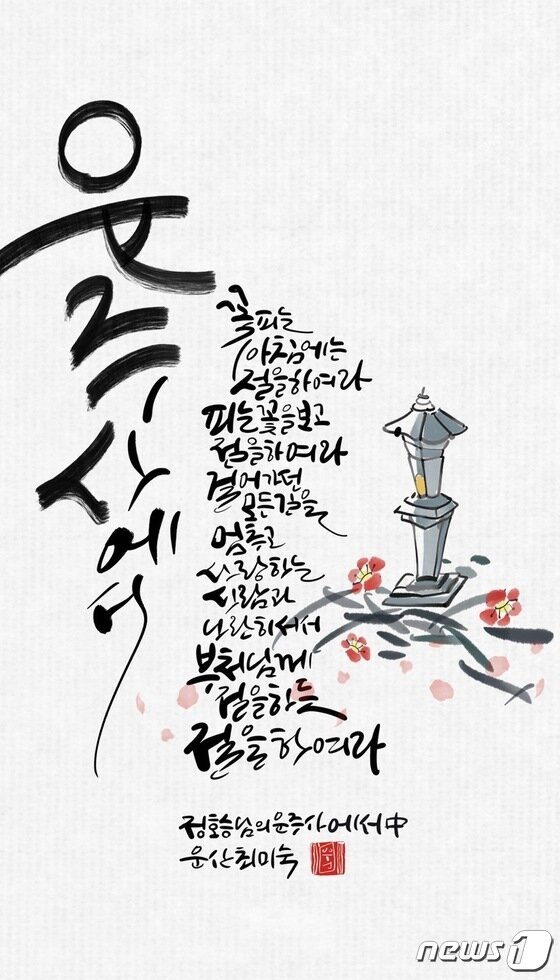 운주사에서
꽃피는
아침에는
절을하여라
피는꽃을보고
절을하여라
걸어가던
모든길을
멈추고
사랑하는
사람과
나란히서서
부처님께
절을하듯
절을하여라
정호승님의운주사에서中
운산최미숙
news1